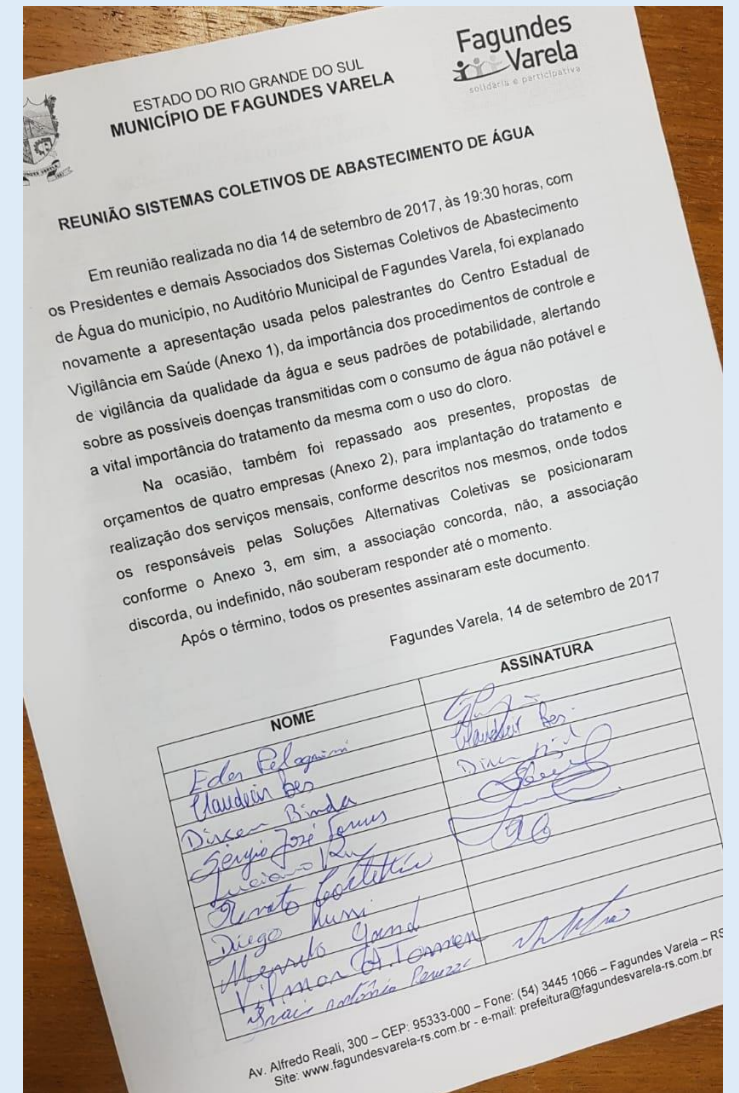 ESTADO DO RIO GRANDE DO SUL
MUNICÍPIO DE FAGUNDES VARELA
Fagundes
Varela
solidária e participativa
REUNIÃO SISTEMAS COLETIVOS DE ABASTECIMENTO DE ÁGUA
Em reunião realizada no dia 14 de setembro de 2017, às 19:30 horas, com
os Presidentes e demais Associados dos Sistemas Coletivos de Abastecimento
de Água do município, no Auditório Municipal de Fagundes Varela, foi explanado
novamente a apresentação usada pelos palestrantes do Centro Estadual de
Vigilância em Saúde (Anexo 1), da importância dos procedimentos de controle e
de vigilância da qualidade da água e seus padrões de potabilidade, alertando
sobre as possíveis doenças transmitidas com o consumo de água não potável e
a vital importância do tratamento da mesma com o uso do cloro.
Na ocasião, também foi repassado aos presentes, propostas de
orçamentos de quatro empresas (Anexo 2), para implantação do tratamento e
realização dos serviços mensais, conforme descritos nos mesmos, onde todos
os responsáveis pelas Soluções Alternativas Coletivas se posicionaram
conforme o Anexo 3, em sim, a associação concorda, não, a associação
discorda, ou indefinido, não souberam responder até o momento.
Após o término, todos os presentes assinaram este documento.
Fagundes Varela, 14 de setembro de 2017
NOME ASSINATURA
Eder
Claudeir Bes Claudeir Bes
Dirceu Binda Dirceu
Sérgio José
Luciano
Renato
Diego
Vilmar
Antônio
Av. Alfredo Reali, 300 – CEP: 95333-000 – Fone: (54) 3445 1066 – Fagundes Varela – RS
Site: www.fagundesvarela-rs.com.br - e-mail: prefeitura@fagundesvarela-rs.com.br